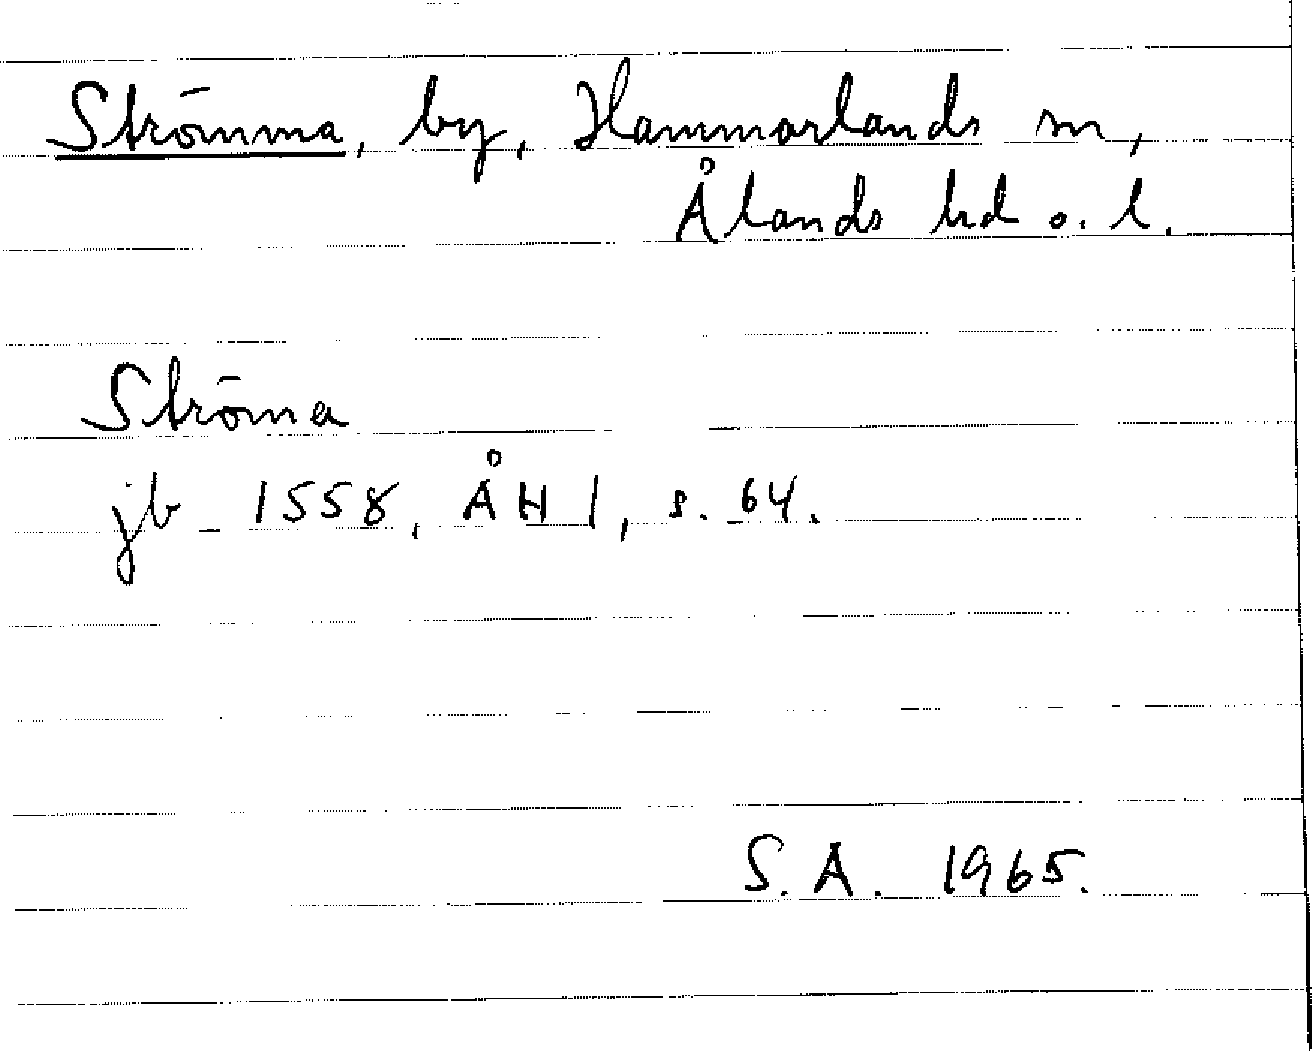 Strömma, by, Hammarlands sn,
Ålands hd o. l.
Ströma
jb 1558, ÅH I, s. 64.
S. A. 1965.